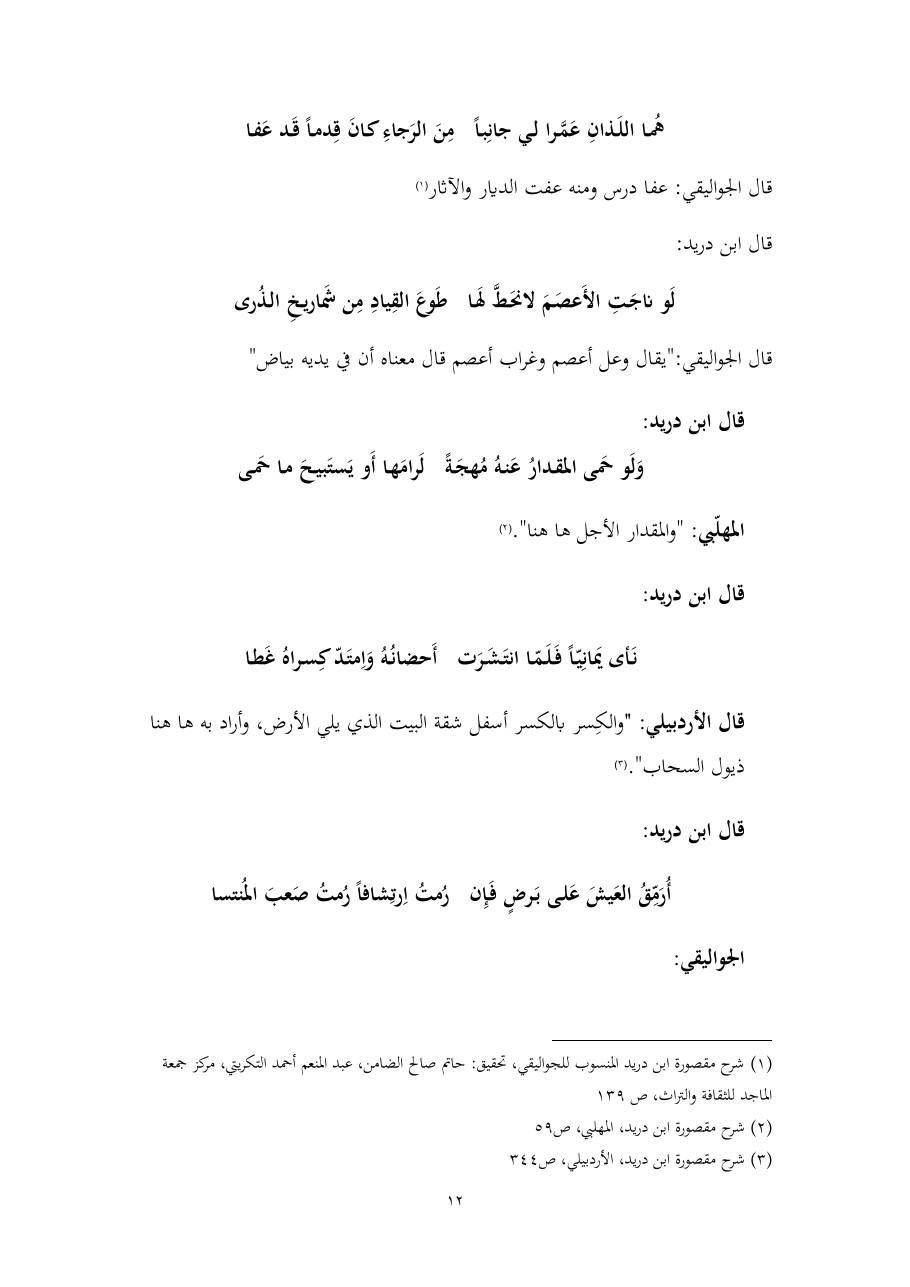 هُما اللَذانِ عَمَّرا لي جانِباً   مِنَ الرَجاءِ كانَ قِدماً قَد عَفا
قال الجواليقي: عفا درس ومنه عفت الديار والآثار(١)
قال ابن دريد:
لَو ناجَتِ الأَعصَمَ لانحَطَّ لَها   طَوعَ القِيادِ مِن شَماريخِ الذُرى
قال الجواليقي:"يقال وعل أعصم وغراب أعصم قال معناه أن في يديه بياض"
قال ابن دريد:
وَلَو حَمى المقدارُ عَنهُ مُهجَةً   لَرامَها أَو يَستَبيحَ ما حَمى
المهلّبي: "والمقدار الأجل ها هنا".(٢)
قال ابن دريد:
نَأى يَمانِيّاً فَلَمّا انتَشَرَت   أَحضانُهُ وَاِمتَدّ كِسراهُ غَطا
قال الأردبيلي: "والكِسر بالكسر أسفل شقة البيت الذي يلي الأرض، وأراد به ها هنا
ذيول السحاب".(٣)
قال ابن دريد:
أُرَمِّقُ العَيشَ عَلى بَرضٍ فَإِن   رُمتُ اِرتِشافاً رُمتُ صَعبَ المُنتسا
الجواليقي:
(١) شرح مقصورة ابن دريد المنسوب للجواليقي، تحقيق: حاتم صالح الضامن، عبد المنعم أحمد التكريتي، مركز جمعة
الماجد للثقافة والتراث، ص ١٣٩
(٢) شرح مقصورة ابن دريد، المهلبي، ص٥٩
(٣) شرح مقصورة ابن دريد، الأردبيلي، ص٣٤٤
١٢